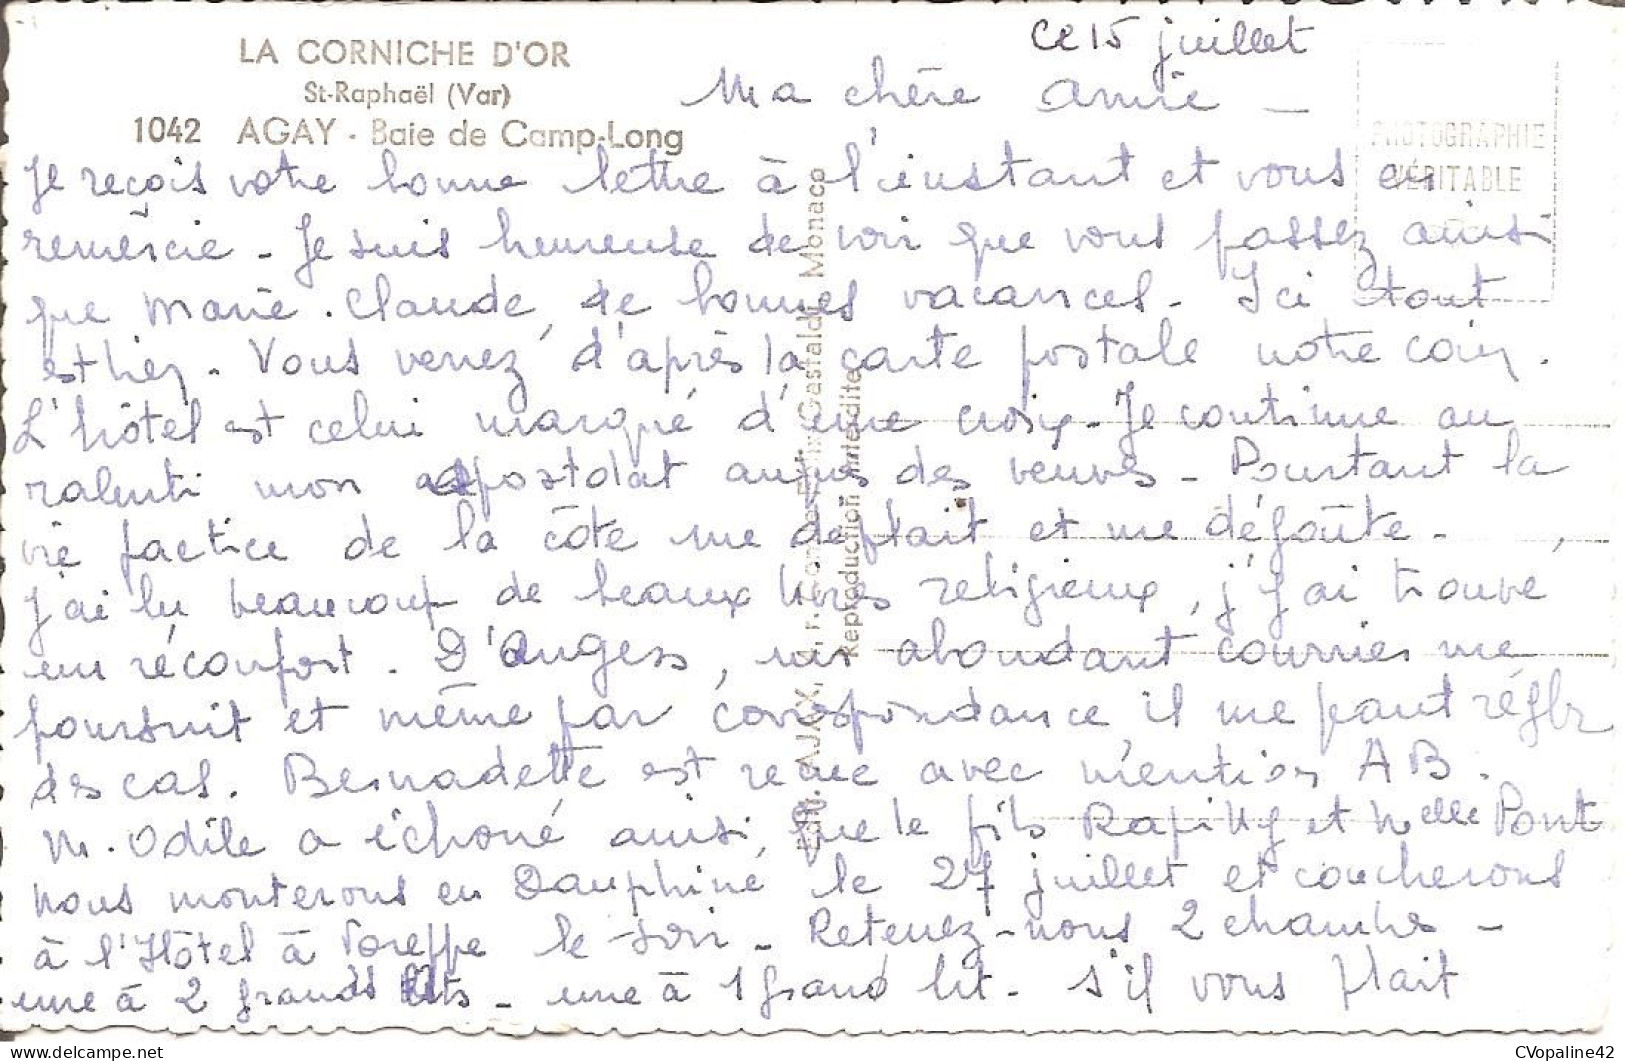 LA CORNICHE D'OR
St-Raphaël (Var)
1042 AGAY - Baie de Camp-Long
PHOTOGRAPHIE
VÉRITABLE
Ce 15 juillet
Ma chère Amie -
Je reçois votre bonne lettre à l'instant et vous en
remercie - Je suis heureuse de voir que vous passez ainsi
que Marie-Claude, de bonnes vacances - Ici tout
est bien. Vous verrez d'après la carte postale notre coin.
L'hôtel est celui marqué d'une croix - Je continue au
ralenti mon apostolat auprès des veuves - Pourtant la
vie factice de la côte me déplait et me dégoûte -
J'ai lu beaucoup de beaux livres religieux, j'y ai trouvé
un réconfort. D'Angers, un abondant courrier me
poursuit et même par correspondance, il me faut régler
des cas. Bernadette est reçue avec mention AB.
M. Odile a échoué ainsi que le fils et Melle Pont
nous monterons en Dauphiné le 27 juillet et coucherons
à l'Hôtel à Voreppe le soir - Retenez-nous 2 chambres -
une à 2 grands lits - une à 1 grand lit - s'il vous plait
Edit. AJAX, Gastaldi, Monaco
Reproduction interdite
CVopaline42